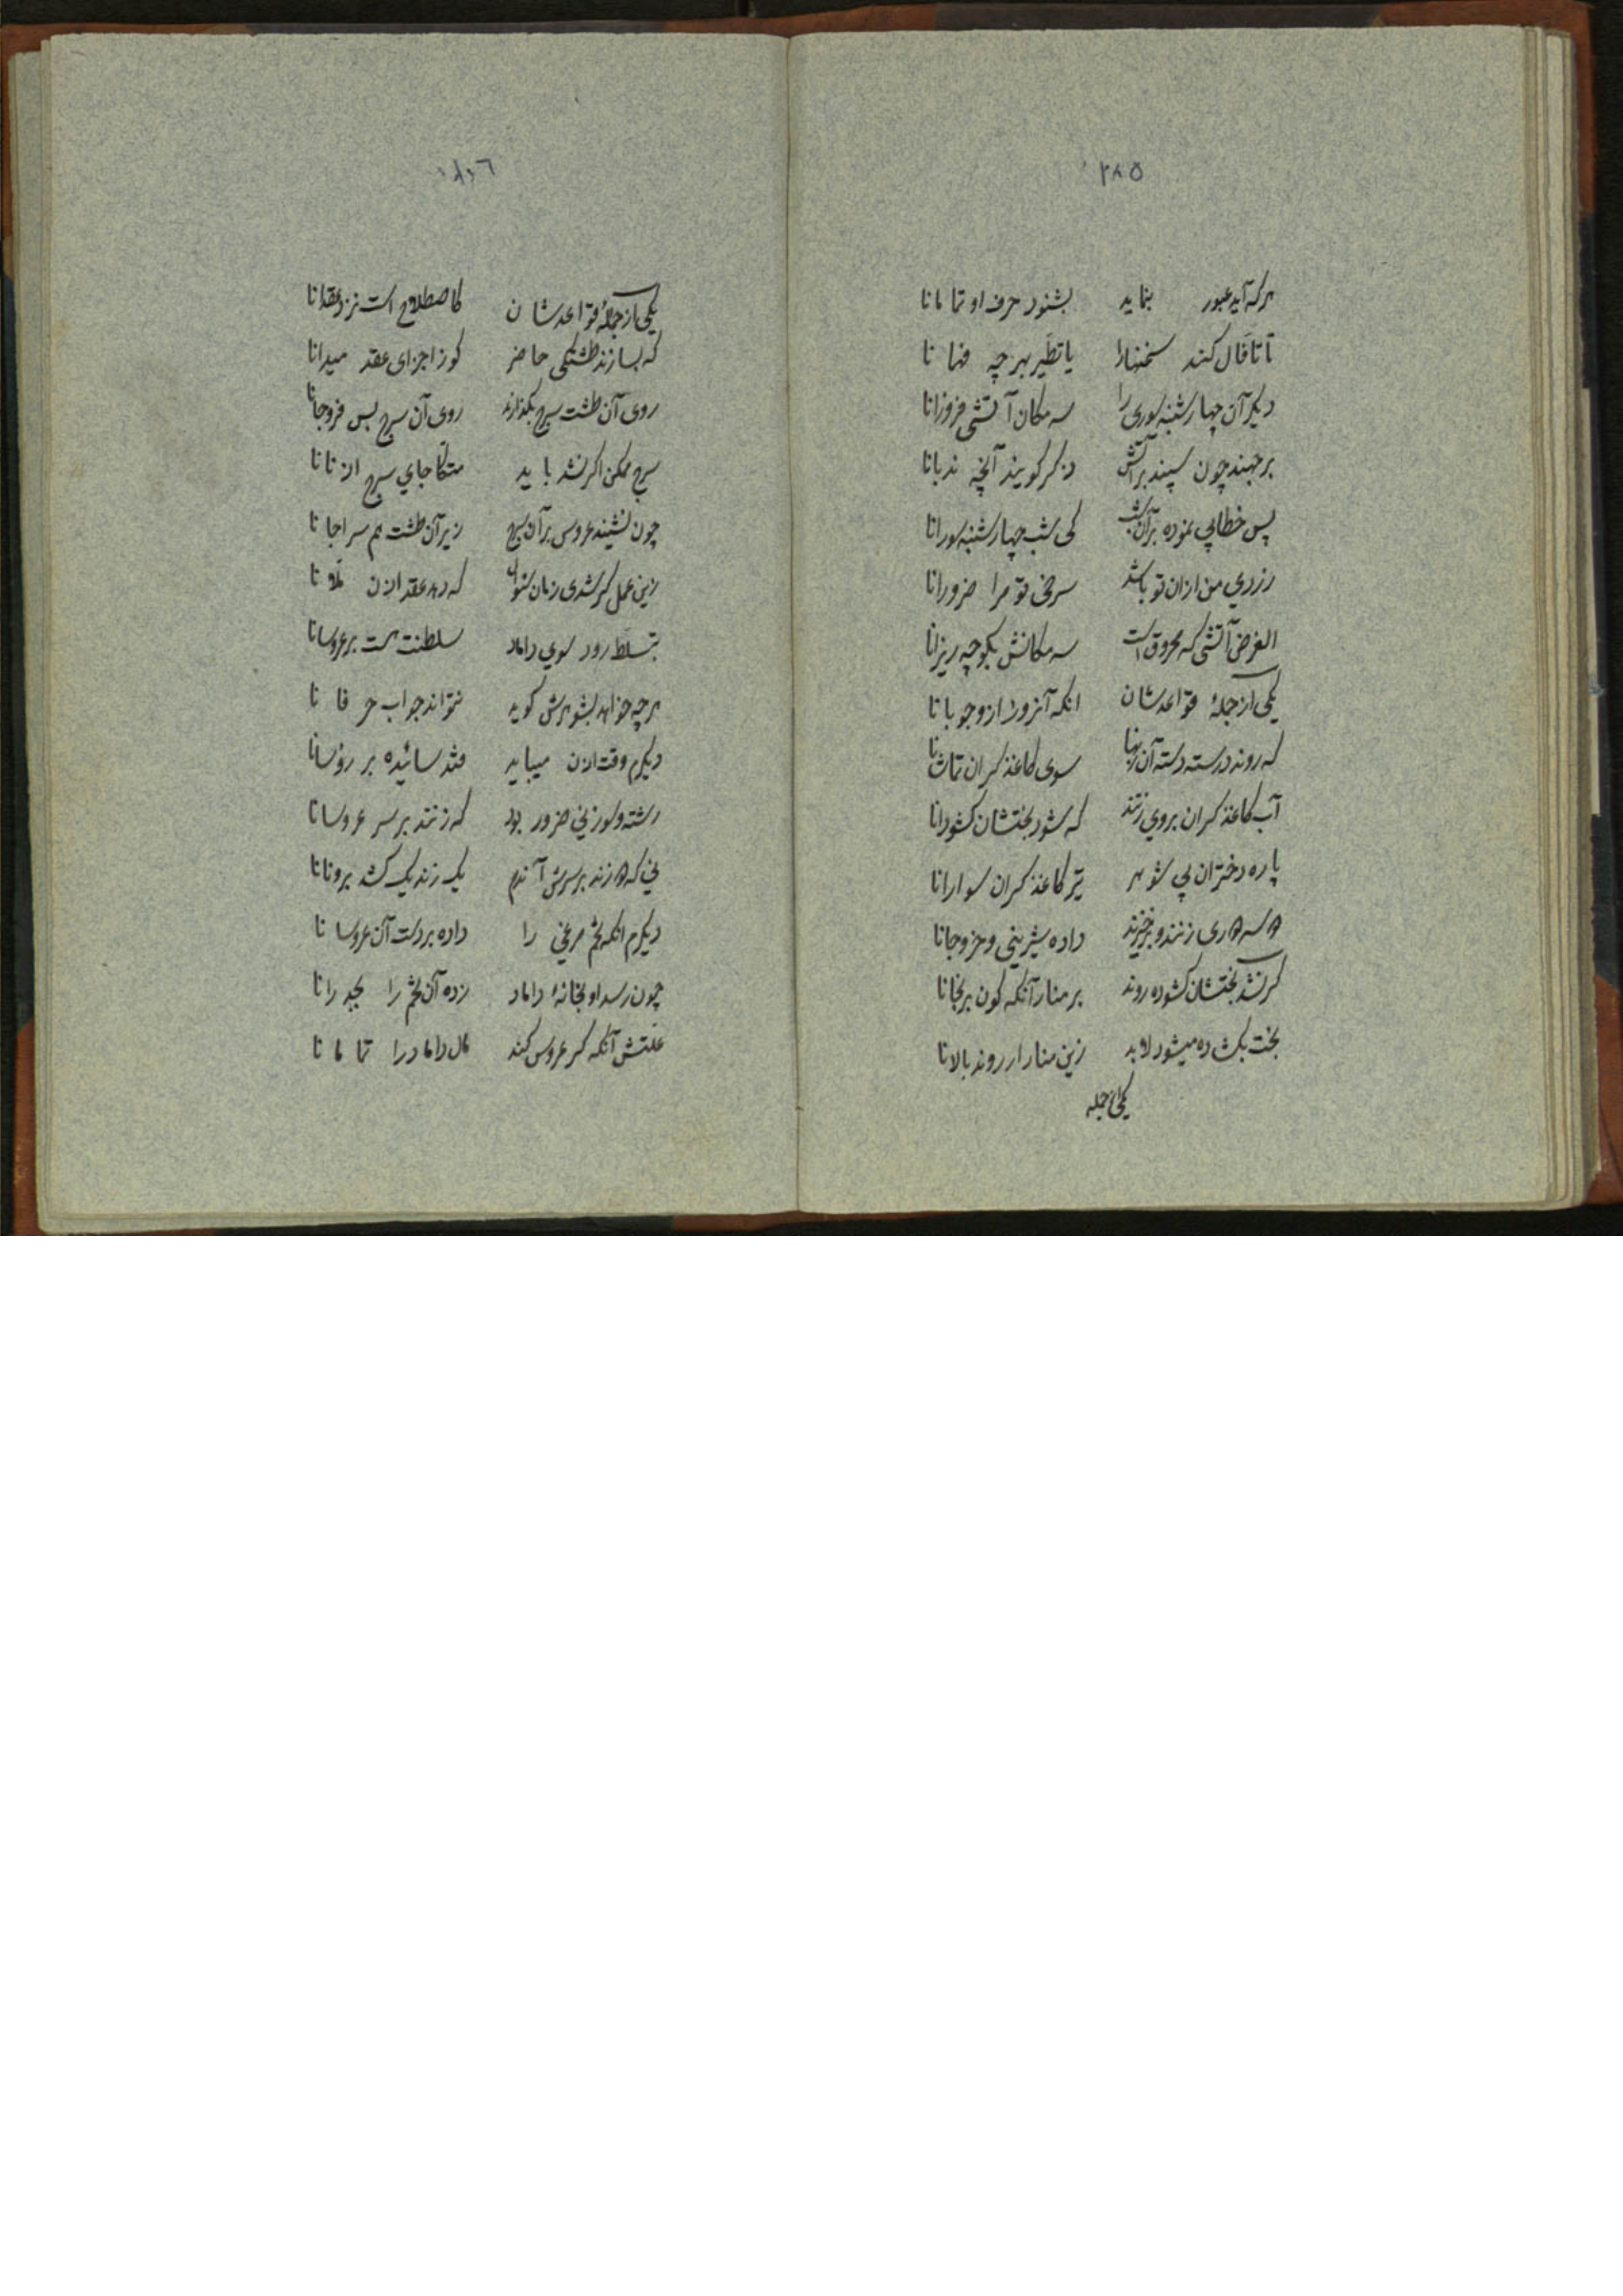 ٢٨٥
هر که آید عبور بنماید بشنود حرف او تمامانا
تا تافال کند سخنها را یا تطیر بهرچه فهمانا
دیگر آن چهارشنبه سوری را سه مکان آتشی فروزانا
برجهند چون سپند بر آتش ذکر گویند آنچه ندبانا
پس خطابی نموده بر آن شب کی شب چهارشنبه سورانا
زردی من ازان تو باشد سرخی تو مرا ضرورانا
الغرض آتشی که محروق است سه مکانش بکوچه ریزانا
یکی از جملهٔ قواعدشان انکه آنروز از وجوبانا
که روند دسته دسته آن زنها سوی کاغذ کران تماشانا
آب کاغذ کران بروی زنند که شود بختشان کشودانا
پاره دختران پی شوهر تیر کاغذ کران سوارانا
زنند و برخیزند داده شیرینی و جزوجانا
کر نشد بختشان کشوده روند بر منار آنکه کون برنجانا
بخت بکشاده میشود لابد زین منار ار روند بالانا
یکی از جمله
٢٨٦
یکی از جملهٔ قواعدشان کاصطلاح است نزد عقدانا
که بسازند طشتکی حاضر کوز اجزای عقد میدانا
روی آن طشت سرج بگذارند روی آن سرج بس فروجانا
سرج ممکن اگر نشد باید متکا جای سرج از نانا
چون نشیند عروس بر آن سرج زیر آن طشت هم سراجانا
زین عمل گر شدی زمان شنوا که دهد عقد اذن ملانا
بتسلط رود سوی داماد سلطنت هست بر عروسانا
هرچه خواهد بشوهرش گوید نتواند جواب حرفانا
دیگرم وقت اذن میباید قند سائیده بر رؤسانا
رشته و سوزنی ضرور بود که زنند بر سر عروسانا
نی که زند بر سرش آندم یک زند یک کشد برونانا
دیگرم انکه تخم مرغی را داده بر دست آن عروسانا
چون رسد او بخانهٔ داماد زده آن تخم را بجدرانا
علتش آنکه کر عروس کند مال داماد را تمامانا